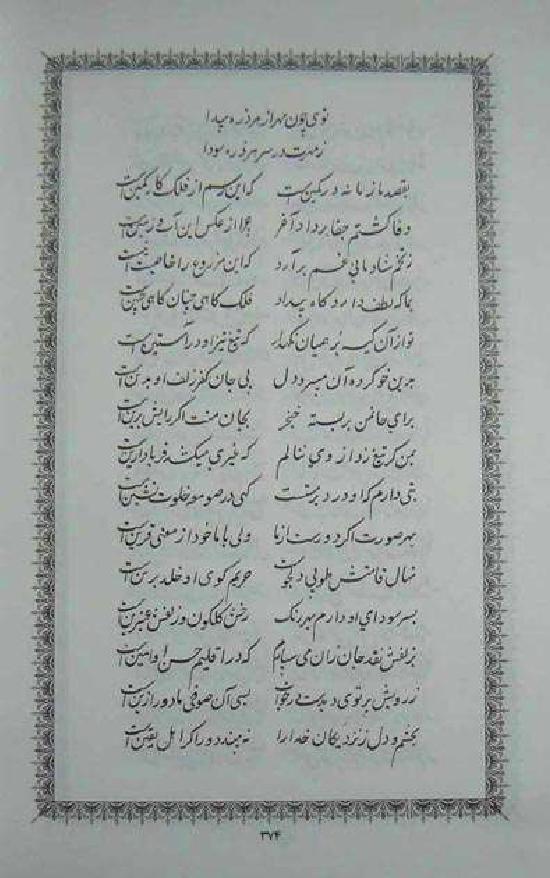 توی چون مهر از هر ذره پیدا
ز مهرت در سر هر ذره سودا
بقصد ما زمانه در کمین است که این رسم از فلک کا کمین است
وفا کشتم جفا بر داد آخر چرا از عکس این آب زمین است
ز تخم شادمانی غم بر آرد که این مزروع را خاصیت این است
بما که لطف دارد گاه بیداد فلک گاهی چنان گاهی چنین است
تو از آن کیسه بر همیان نگهدار که تیغ تیز او در آستین است
برین خو کرده آن میبرد دل بی جان کفر زلف او به دین است
برای جانم ن بربسته خنجر بجان منت اگر رایش برین است
من گر تیغ زد از وی ننالم که غیری میکشد فریادم این است
بتی دارم که او در دیر مست گهی در صومعه خلوت نشین است
بهر صورت اگر دور است از ما ولی با ما خود از معنی قرین است
نهال قامتش طوبی دلجوست حریم کوی او خلد برین است
بسر سودای او دارم بهر رنگ رخش گلگون و زلفش عنبرین است
بزلفش نقد جان زان می سپارم که در اقلیم حسن او امین است
ز رویش پرتوی دیدست در خواب بسی آن صوفی ما دور ازین است
بچشم و دل ز نزدیکان خدا را نه بیند دور اگر اهل یقین است
۳۷۴